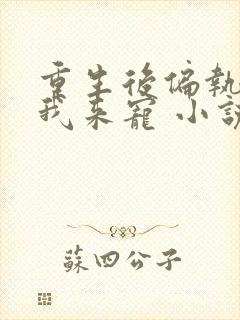 重生後偏執
我來寵 小說
蘇四公子